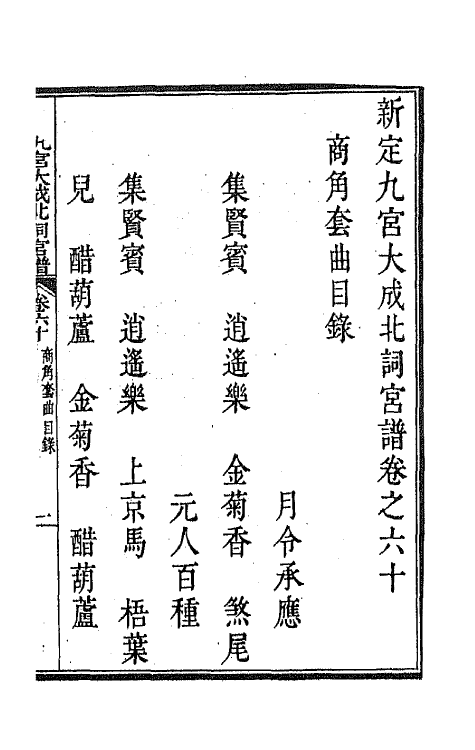 新定九宮大成北詞宮譜卷之六十
商角套曲目錄
月令承應
集賢賓　逍遙樂　金菊香　煞尾
元人百種
集賢賓　逍遙樂　上京馬　梧葉
兒　醋葫蘆　金菊香　醋葫蘆
九宮大成北詞宮譜　卷六十　商角套曲目錄　一